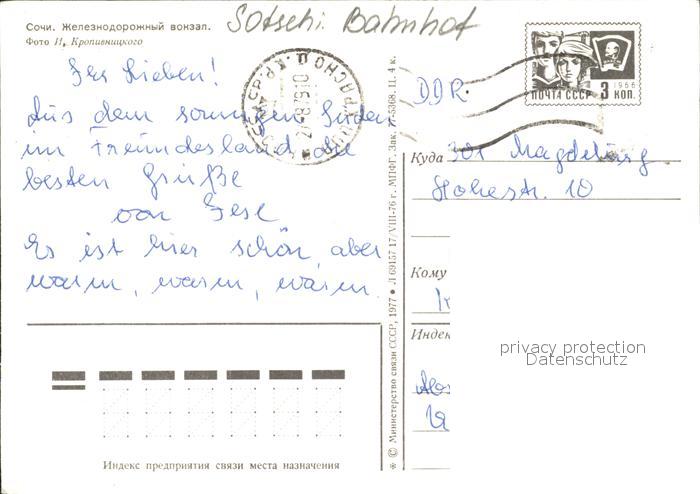 Сочи. Железнодорожный вокзал.
Фото И. Кропивницкого
Sotschi. Bahnhof
Ihr Lieben!
Aus dem sonnigen Süden
im Freundesland die
besten Grüße
von Gesl
Es ist hier schön, aber
warm, warm, warm.
ПОЧТА СССР
1966
3 КОП.
DDR
Куда 301 Magdeburg
Hohestr. 10
Кому
Индек
privacy protection
Datenschutz
© Министерство связи СССР, 1977
Л 69157 17/VIII-76 г. МПФГ. Зак. 77-3368. Ц. 4 к.
Индекс предприятия связи места назначения